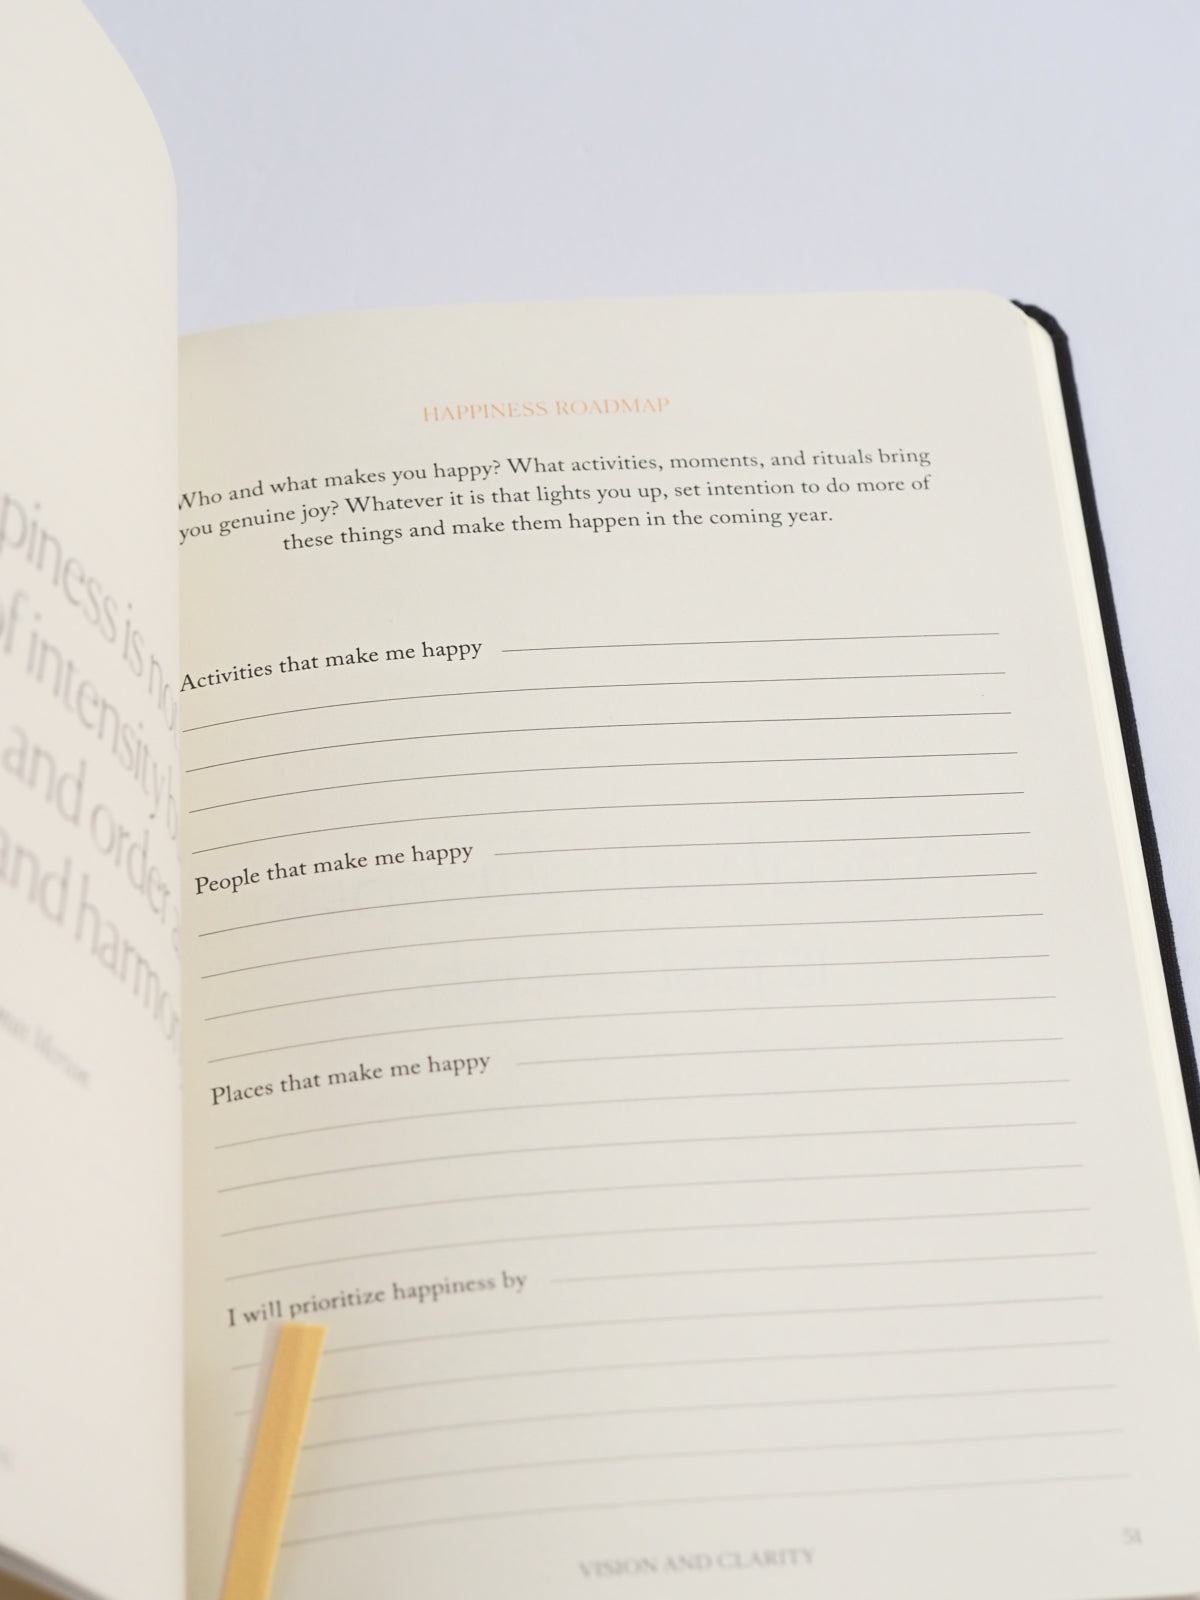 piness is no
of intensity b
and order
and harmo
HAPPINESS ROADMAP
Who and what makes you happy? What activities, moments, and rituals bring
you genuine joy? Whatever it is that lights you up, set intention to do more of
these things and make them happen in the coming year.
Activities that make me happy
People that make me happy
Places that make me happy
I will prioritize happiness by
VISION AND CLARITY
51